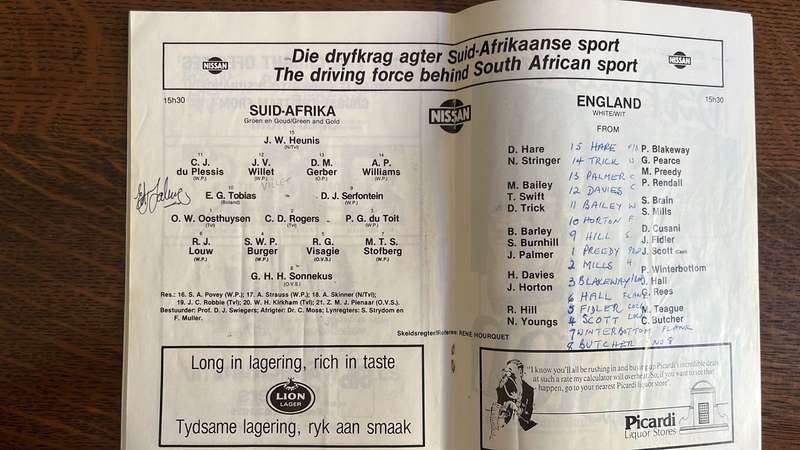 NISSAN
Die dryfkrag agter Suid-Afrikaanse sport
The driving force behind South African sport
NISSAN
15h30
SUID-AFRIKA
Groen en Goud/Green and Gold
15
J. W. Heunis
(N/Tvl)
11 12 13 14
C. J. du Plessis J. V. Willet D. M. Gerber A. P. Williams
(W.P.) (W.P.) (O.P.) (W.P.)
VILLET
10 9
E. G. Tobias D. J. Serfontein
(Boland) (W.P.)
1 2 3
O. W. Oosthuysen C. D. Rogers P. G. du Toit
(W.P.)
R. J. Louw S. W. P. Burger R. G. Visagie M. T. S. Stofberg
(W.P.) (W.P.) (O.V.S.) (W.P.)
8
G. H. H. Sonnekus
(O.V.S.)
Res.: 16. S. A. Povey (W.P.); 17. A. Strauss (W.P.); 18. A. Skinner (N/Tvl);
19. J. C. Robbie (Tvl); 20. W. H. Kirkham (Tvl); 21. Z. M. J. Pienaar (O.V.S.).
Bestuurder: Prof. D. J. Swiegers; Afrigter: Dr. C. Moss; Lynregters: S. Strydom en
F. Muller.
Skeidsregter/Referee: RENE HOURQUET
Long in lagering, rich in taste
LION
LAGER
Tydsame lagering, ryk aan smaak
NISSAN
ENGLAND
15h30
WHITE/WIT
FROM
D. Hare 15 HARE P. Blakeway
N. Stringer 14 TRICK W G. Pearce
13 PALMER C M. Preedy
M. Bailey 12 DAVIES C P. Rendall
T. Swift 11 BAILEY W S. Brain
D. Trick 10 HORTON F S. Mills
B. Barley 9 HILL S D. Cusani
S. Burnhill 1 PREEDY J. Fidler
J. Palmer 2 MILLS H J. Scott (Capt)
H. Davies 3 BLAKEWAY P. Winterbottom
J. Horton 6 HALL FLANK J. Hall
G. Rees
R. Hill 5 FIDLER LOCK M. Teague
N. Youngs 4 SCOTT LOCK C. Butcher
7 WINTERBOTTOM FLANK
8 BUTCHER NO 8
"I know you'll all be rushing in and buying up Picardi's incredible deals
at such a rate my calculator will overheat. So, if you want to see that
happen, go to your nearest Picardi liquor store".
Picardi
Liquor Stores